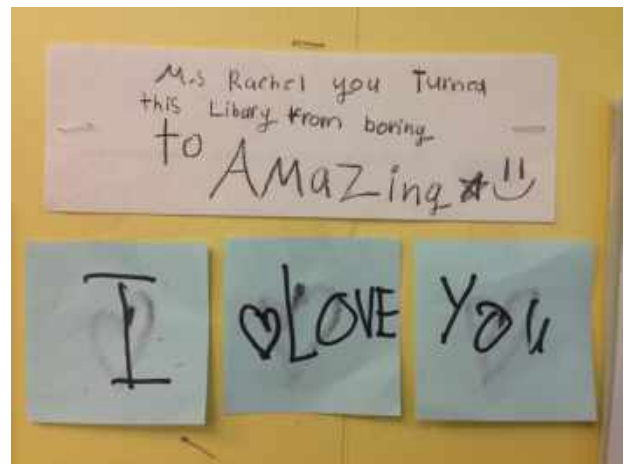 M.s Rachel you Turned
this Libary from boring
to AMaZing
I LOVE You